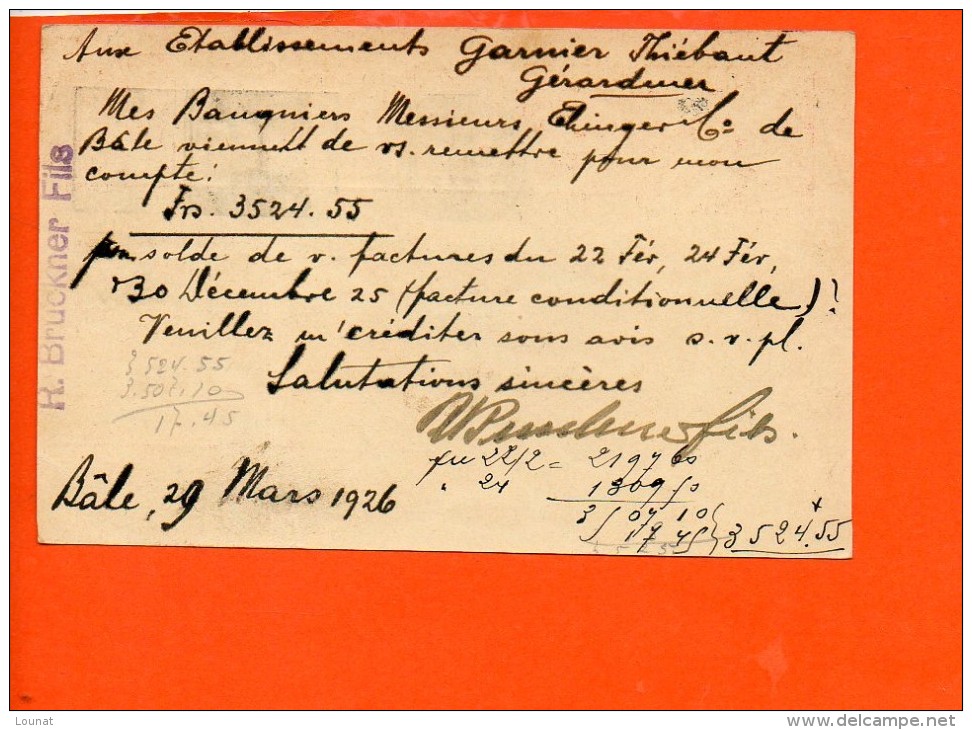 Aux Etablissements Garnier Thiébaut
Gérardmer
Mes Banquiers Messieurs, Ehinger & Co de
Bâle viennent de vs. remettre pour mon
compte:
Frs. 3524.55
pour solde de v. factures du 22 Fév, 24 Fév,
+30 Décembre 25 (facture conditionnelle)!
Veuillez m'créditer sans avis s.v.pl.
Salutations sincères
R. Bruckner Fils
3524.55
3.507.10
17.45
RBruckner fils.
fre 22/2 = 2197 60
" 24 1309 50
3507 10
17 45
3524.55
Bâle, 29 Mars 1926
Lounat
www.delcampe.net